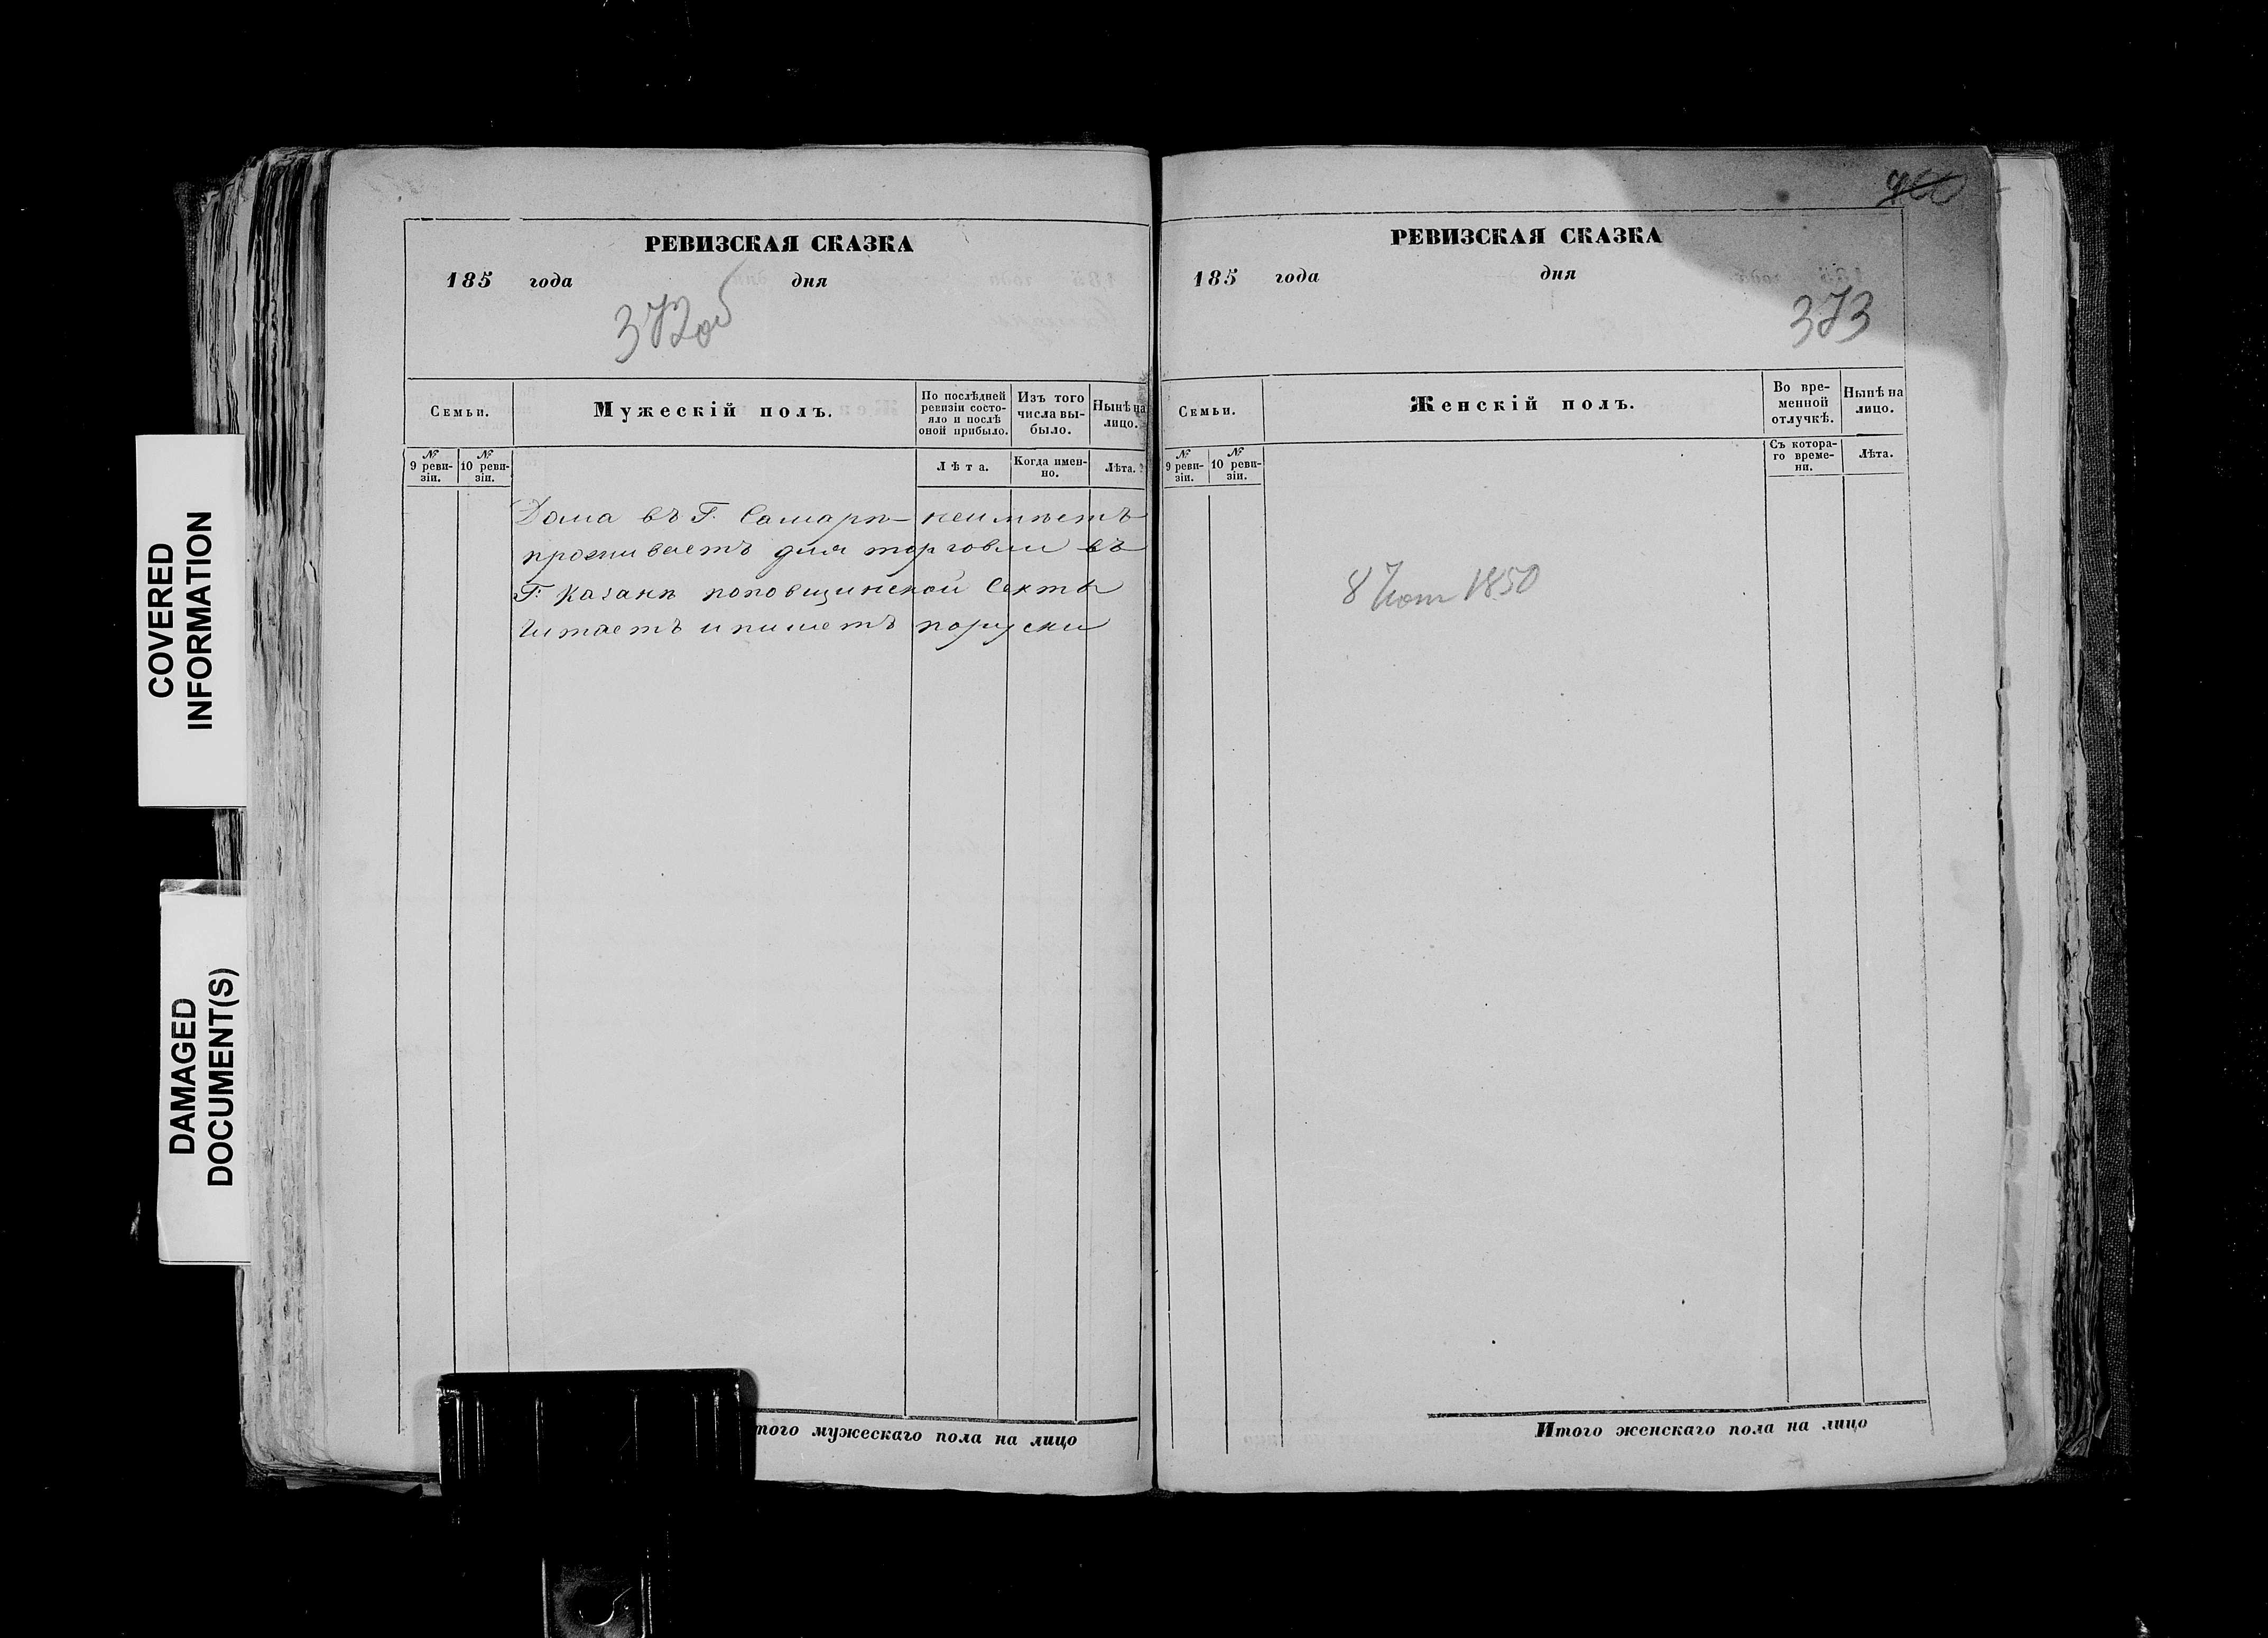 COVERED
INFORMATION
DAMAGED
DOCUMENT(S)
РЕВИЗСКАЯ СКАЗКА
185 года дня
372об
Семьи.
Мужескій полъ.
По послѣдней ревизіи состояло и послѣ оной прибыло.
Изъ того числа выбыло.
Нынѣ на лицо.
№ 9 ревизіи.
№ 10 ревизіи.
Лѣта.
Когда именно.
Лѣта.
Дома въ Г. Самарѣ неимѣетъ
проживаетъ для торговли въ
Г. Казанѣ поповщинской секты
Читаетъ и пишетъ поруски
того мужескаго пола на лицо
400
РЕВИЗСКАЯ СКАЗКА
185 года дня
373
Семьи.
Женскій полъ.
Во временной отлучкѣ.
Нынѣ на лицо.
№ 9 ревизіи.
№ 10 ревизіи.
Съ котораго времени.
Лѣта.
8 1850
Итого женскаго пола на лицо